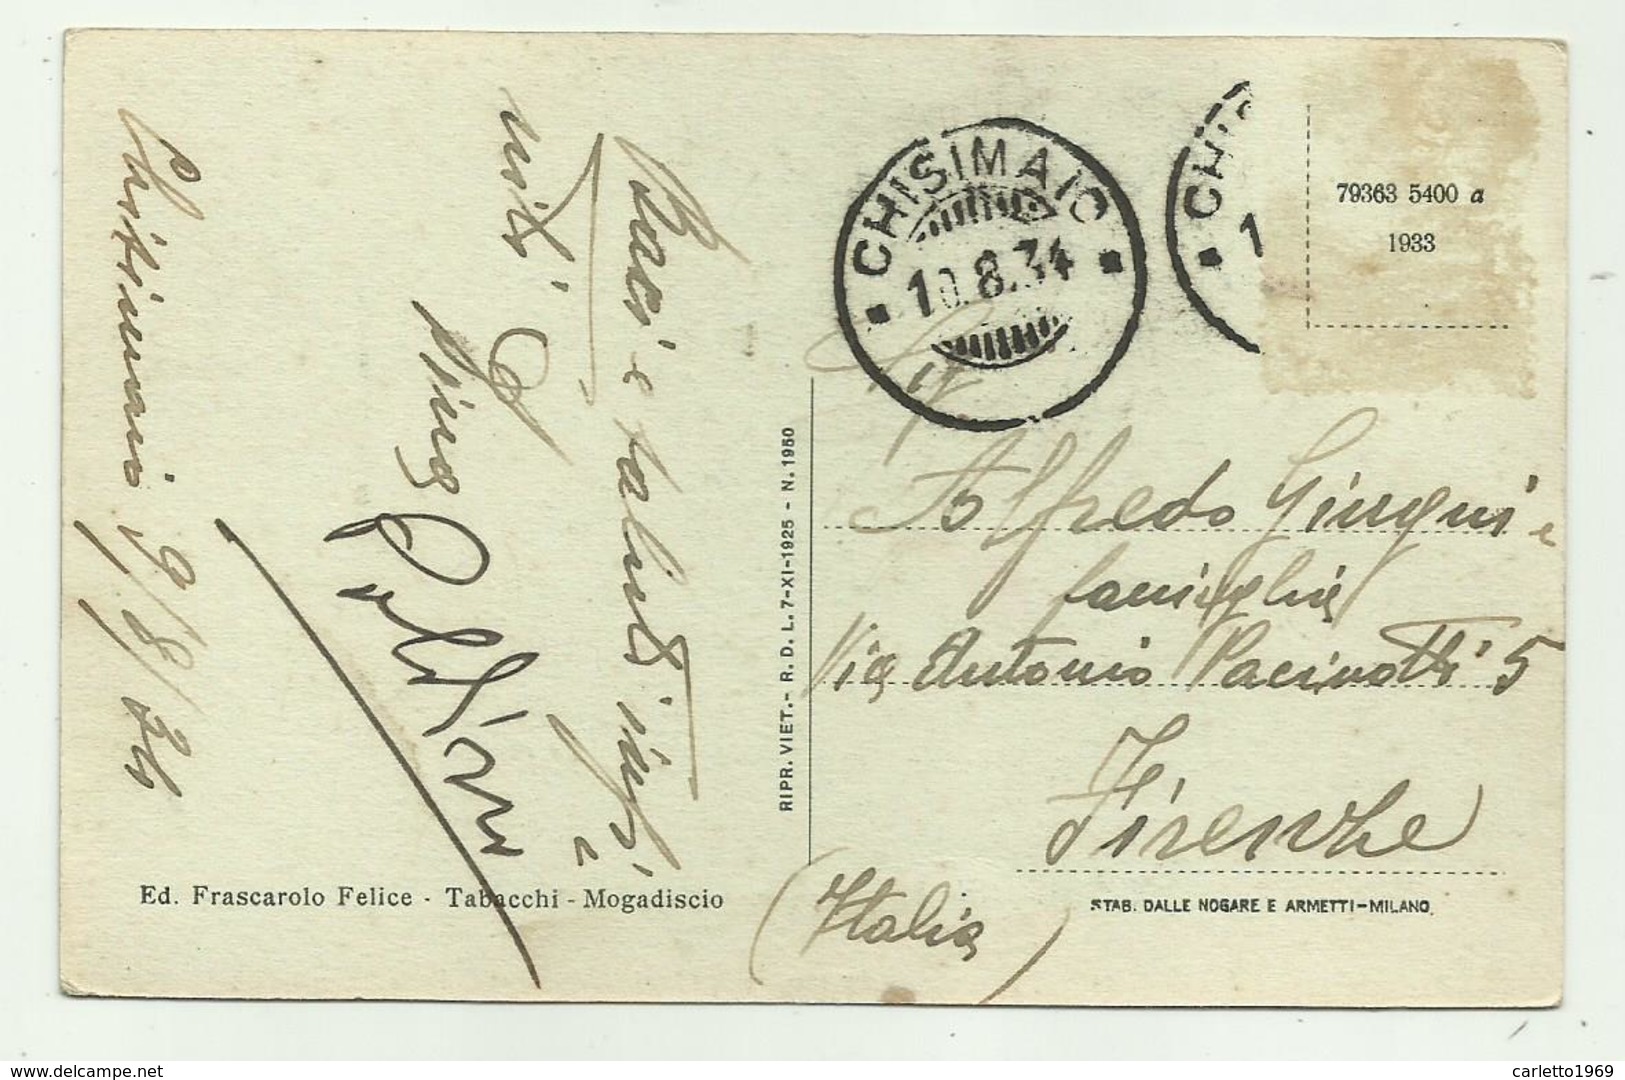 Chisimaio 9/8/34
Baci e saluti
a
CHISIMAIO
10.8.34
CHIS
1
79363 5400 a
1933
Sig
Alfredo Giugni e
famiglia
Via Antonio Pacinotti 5
Firenze
(Italia)
RIPR. VIET.- R. D. L. 7-XI-1925 - N. 1950
Ed. Frascarolo Felice - Tabacchi - Mogadiscio
STAB. DALLE NOGARE E ARMETTI-MILANO.
www.delcampe.net
carletto1969